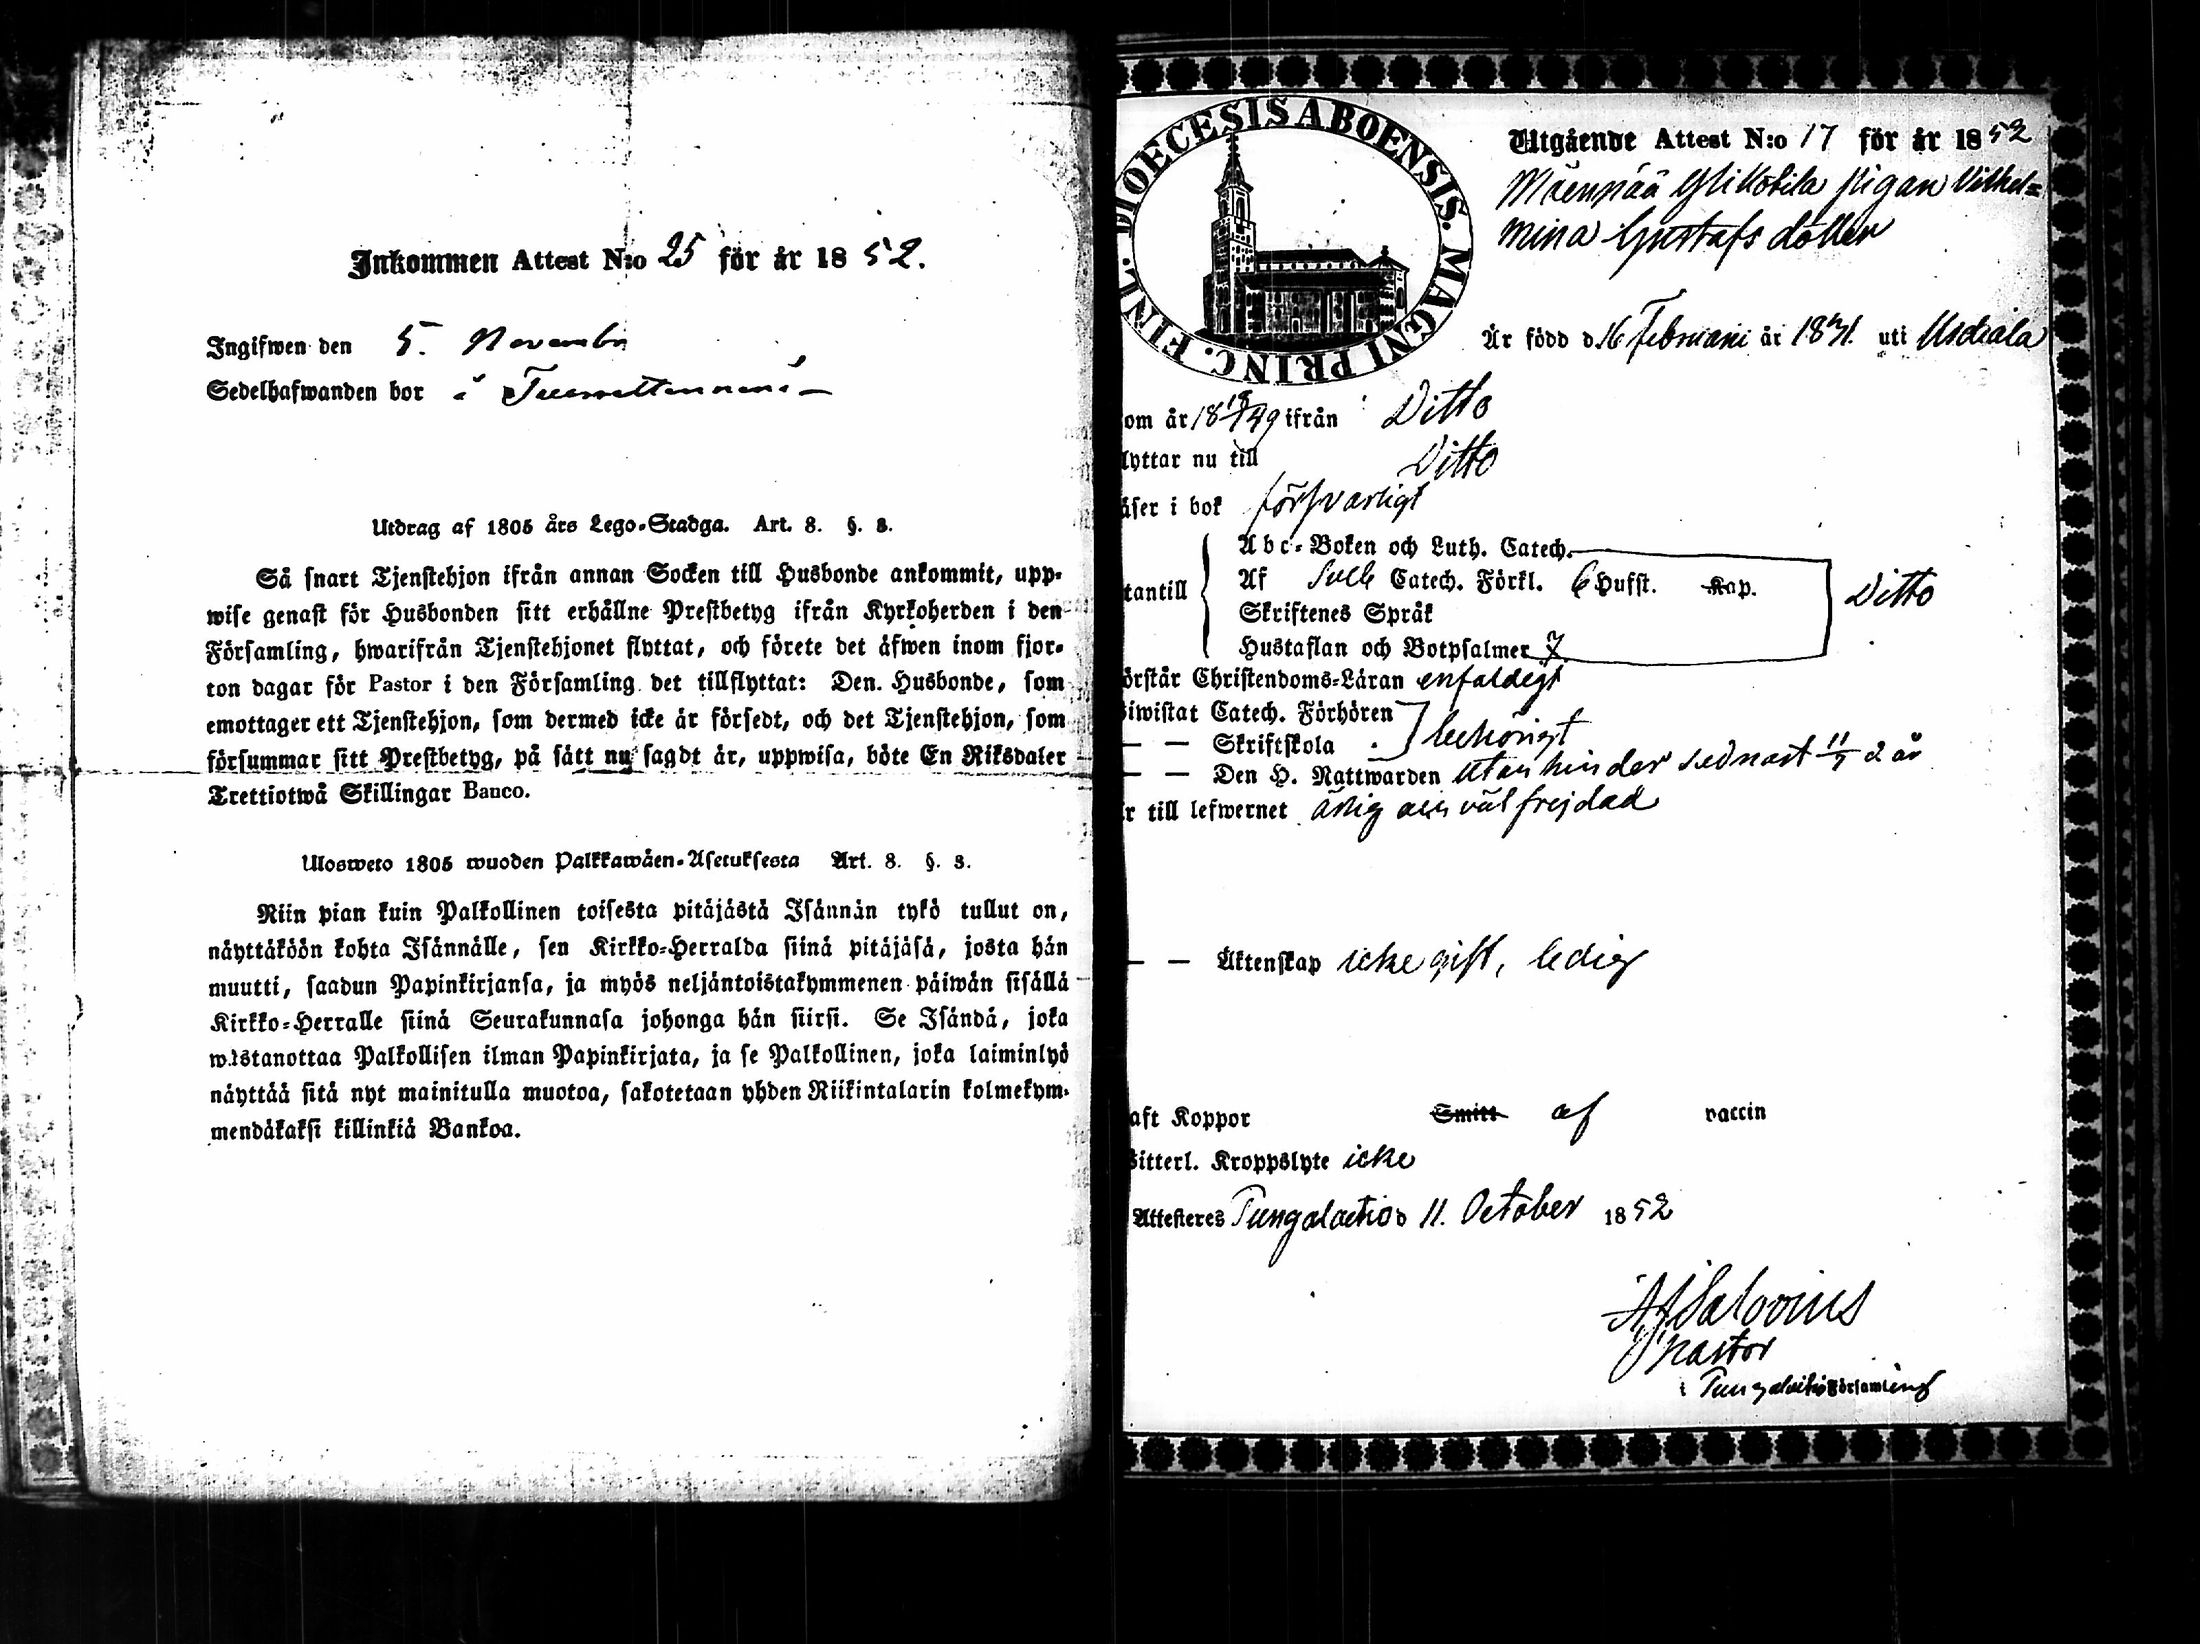 Inkommen Attest N:o 25 för år 1852.
Ingifwen den 5. Novembr
Sedelhafwanden bor i
Utdrag af 1805 års Lego-Stadga. Art. 8. §. 3.
Så snart Tjenstehjon ifrån annan Socken till Husbonde ankommit, upp-
wise genast för Husbonden sitt erhållne Prestbetyg ifrån Kyrkoherden i den
Församling, hwarifrån Tjenstehjonet flyttat, och förete det äfwen inom fjor-
ton dagar för Pastor i den Församling det tillflyttat: Den Husbonde, som
emottager ett Tjenstehjon, som dermed icke är försedt, och det Tjenstehjon, som
försummar sitt Prestbetyg, på sätt nu sagdt är, uppwisa, böte En Riksdaler
Trettiotwå Skillingar Banco.
Ulosweto 1805 wuoden Palkkawäen-Asetuksesta Art. 8. §. 3.
Niin pian kuin Palkollinen toisesta pitäjästä Isännän tykö tullut on,
näyttäköön kohta Isännälle, sen Kirkko-Herralda siinä pitäjäsä, josta hän
muutti, saadun Papinkirjansa, ja myös neljäntoistakymmenen päiwän sisällä
Kirkko-Herralle siinä Seurakunnasa johonga hän siirsi. Se Isändä, joka
wastanottaa Palkollisen ilman Papinkirjata, ja se Palkollinen, joka laiminlyö
näyttää sitä nyt mainitulla muotoa, sakotetaan yhden Riikintalarin kolmekym-
mendäkaksi killinkiä Bankoa.
DIOECESIS ABOENSIS. MAGNI PRINC. FINL.
Utgående Attest N:o 17 för år 1852
Mäenpää pigan Vilhel=
mina Gustafs dotter
Är född d. 16 Februarii år 1831. uti Usckala
om år 18 18/49 ifrån Ditto
lyttar nu till Ditto
äser i bok försvarligt
tantill
Abc-Boken och Luth. Catech.
Af Catech. Förkl. 6 Hufst. Kap.
Skriftenes Språk
Hustaflan och Botpsalmer 7
Ditto
örstår Christendoms-Läran enfaldigt
iwistat Catech. Förhören
— — Skriftskola behörigt
— — Den H. Nattwarden utan hinder sednast 11/7 d. år
r till lefwernet ärlig och väl frejdad
— — Äktenskap icke gift, ledig
aft Koppor Smitt af vaccin
itterl. Kroppslyte icke
Attesteres Tungalaetio d 11. October 1852
Salovius
Pastor
i Tungalaitio Församling